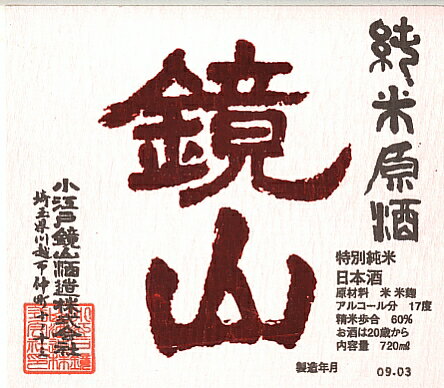 純米原酒
鏡山
特別純米
日本酒
原材料　米 米麹
アルコール分　17度
精米歩合　60%
お酒は20歳から
内容量　720mℓ
製造年月　09.03
小江戸鏡山酒造株式会社
埼玉県川越市仲町